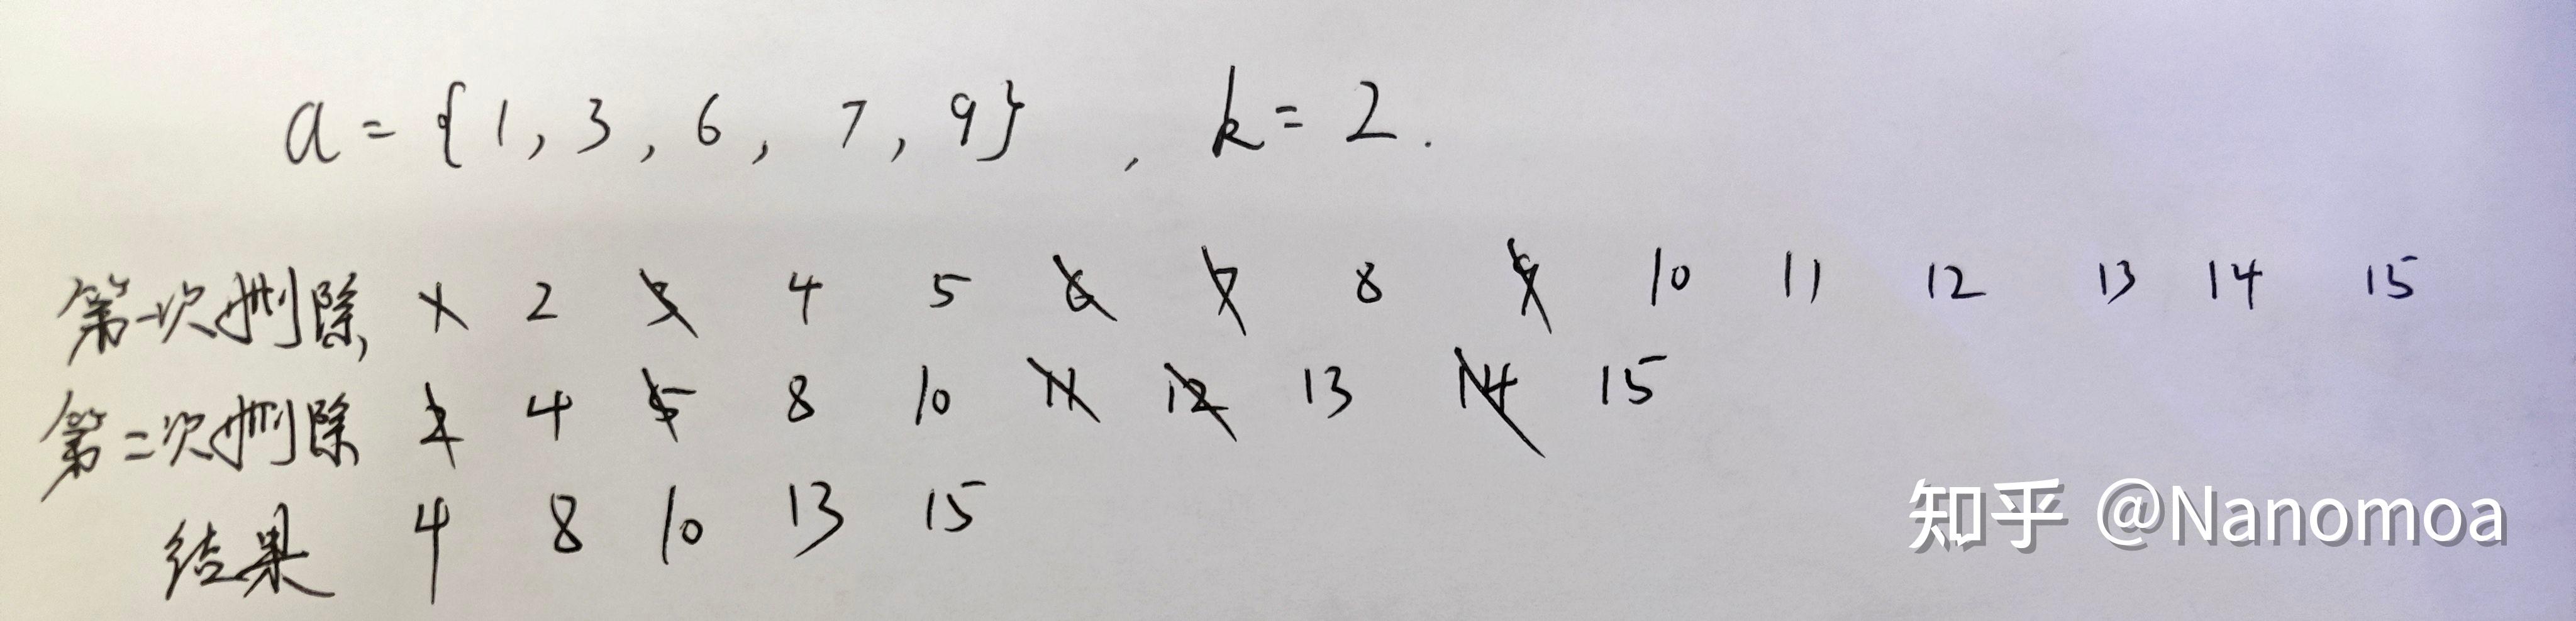 a = { 1 , 3 , 6 , 7 , 9 } , k = 2 .
第一次删除, 1 2 3 4 5 6 7 8 9 10 11 12 13 14 15
第二次删除 2 4 5 8 10 11 12 13 14 15
结果 4 8 10 13 15
知乎 @Nanomoa